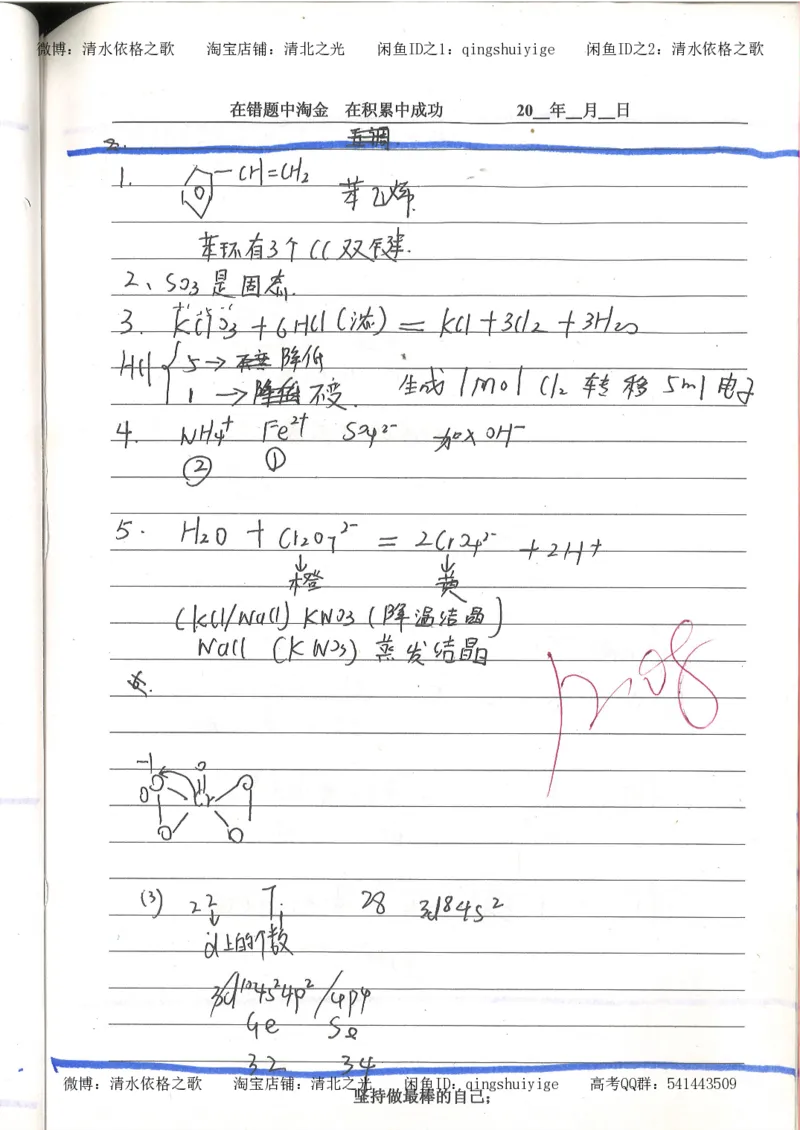 微博：清水依格之歌 淘宝店铺：清北之光 闲鱼ID之1：qingshuiyige 闲鱼ID之2：清水依格之歌
在错题中淘金 在积累中成功 20__年__月__日
五调.
1. CH=CH2 苯乙烯.
苯环有3个CC双键.
2、SO3是固态.
3. KClO3 + 6HCl(浓) = KCl + 3Cl2 + 3H2O
HCl { 5 → 降低
1 → 不变. 生成1mol Cl2 转移5mol电子
4. NH4+ Fe2+ SO4 2- 加x OH-
② ①
5. H2O + Cr2O7 2- = 2CrO4 2- + 2H+
↓橙 ↓黄
(KCl/NaCl) KNO3 (降温结晶)
NaCl (KNO3) 蒸发结晶
-1 O
O Cr O
O O O
(3) 22 Ti 28 3d8 4s2
↓
d上的个数
3d10 4s2 4p2 / 4p4
Ge Se
32 34
微博：清水依格之歌 淘宝店铺：清北之光 闲鱼ID：qingshuiyige 高考QQ群：541443509
坚持做最棒的自己；